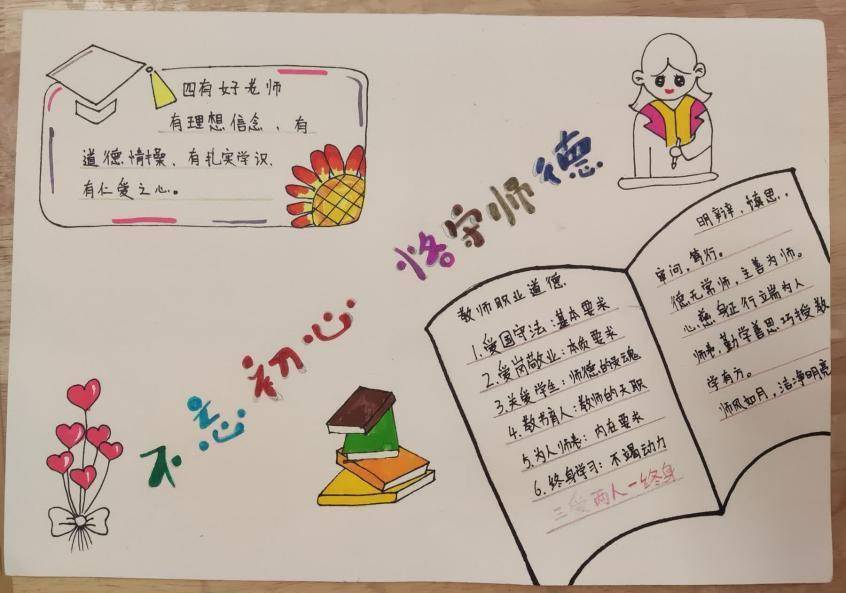 四有好老师
有理想信念、有
道德情操、有扎实学识、
有仁爱之心。
不忘初心 恪守师德
教师职业道德
1.爱国守法:基本要求
2.爱岗敬业:本质要求
3.关爱学生:师德的灵魂
4.教书育人:教师的天职
5.为人师表:内在要求
6.终身学习:不竭动力
三爱两人一终身
明辩,慎思,
审问,笃行。
德无常师,主善为师。
心慈身正行立端为人
师表,勤学善思巧授教
学有方。
师风如月,洁净明亮